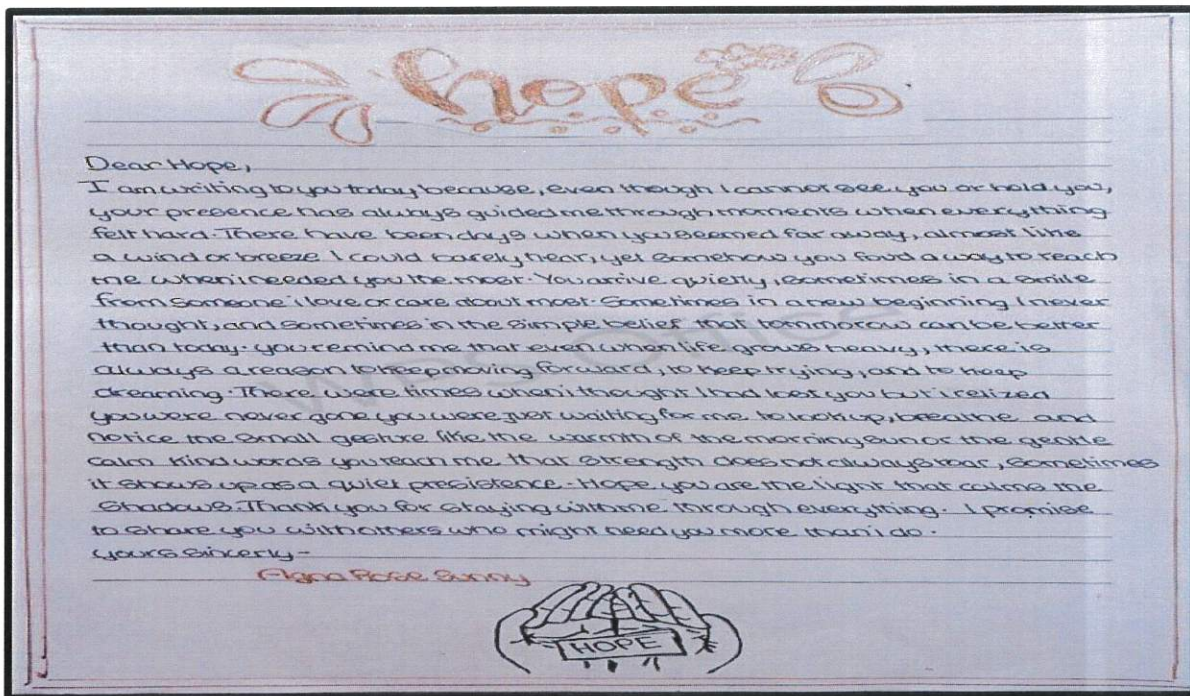 Hope
Dear Hope,
I am writing to you today because, even though I cannot see you or hold you,
your presence has always guided me through moments when everything
felt hard. There have been days when you seemed far away, almost like
a wind or breeze I could barely hear, yet somehow you foud a way to reach
me when i needed you the most. You arrive quietly, sometimes in a smile
from someone i love or care about most. Sometimes in a new beginning I never
thought, and sometimes in the simple belief that tommorow can be better
than today. you remind me that even when life grows heavy, there is
always a reason to keep moving forward, to keep trying, and to keep
dreaming. There were times when i thought I had lost you but i relized
you were never gone you were just waiting for me to look up, breathe and
notice the small gesture like the warmth of the morning sun or the gentle
calm kind words you teach me that strength does not always roar, sometimes
it shows up as a quiet presistence. Hope you are the light that calms the
shadows. Thank you for staying with me through everything. I promise
to share you with others who might need you more than i do.
yours sincerly-
Agna Rose Sunny
HOPE
WPS Office